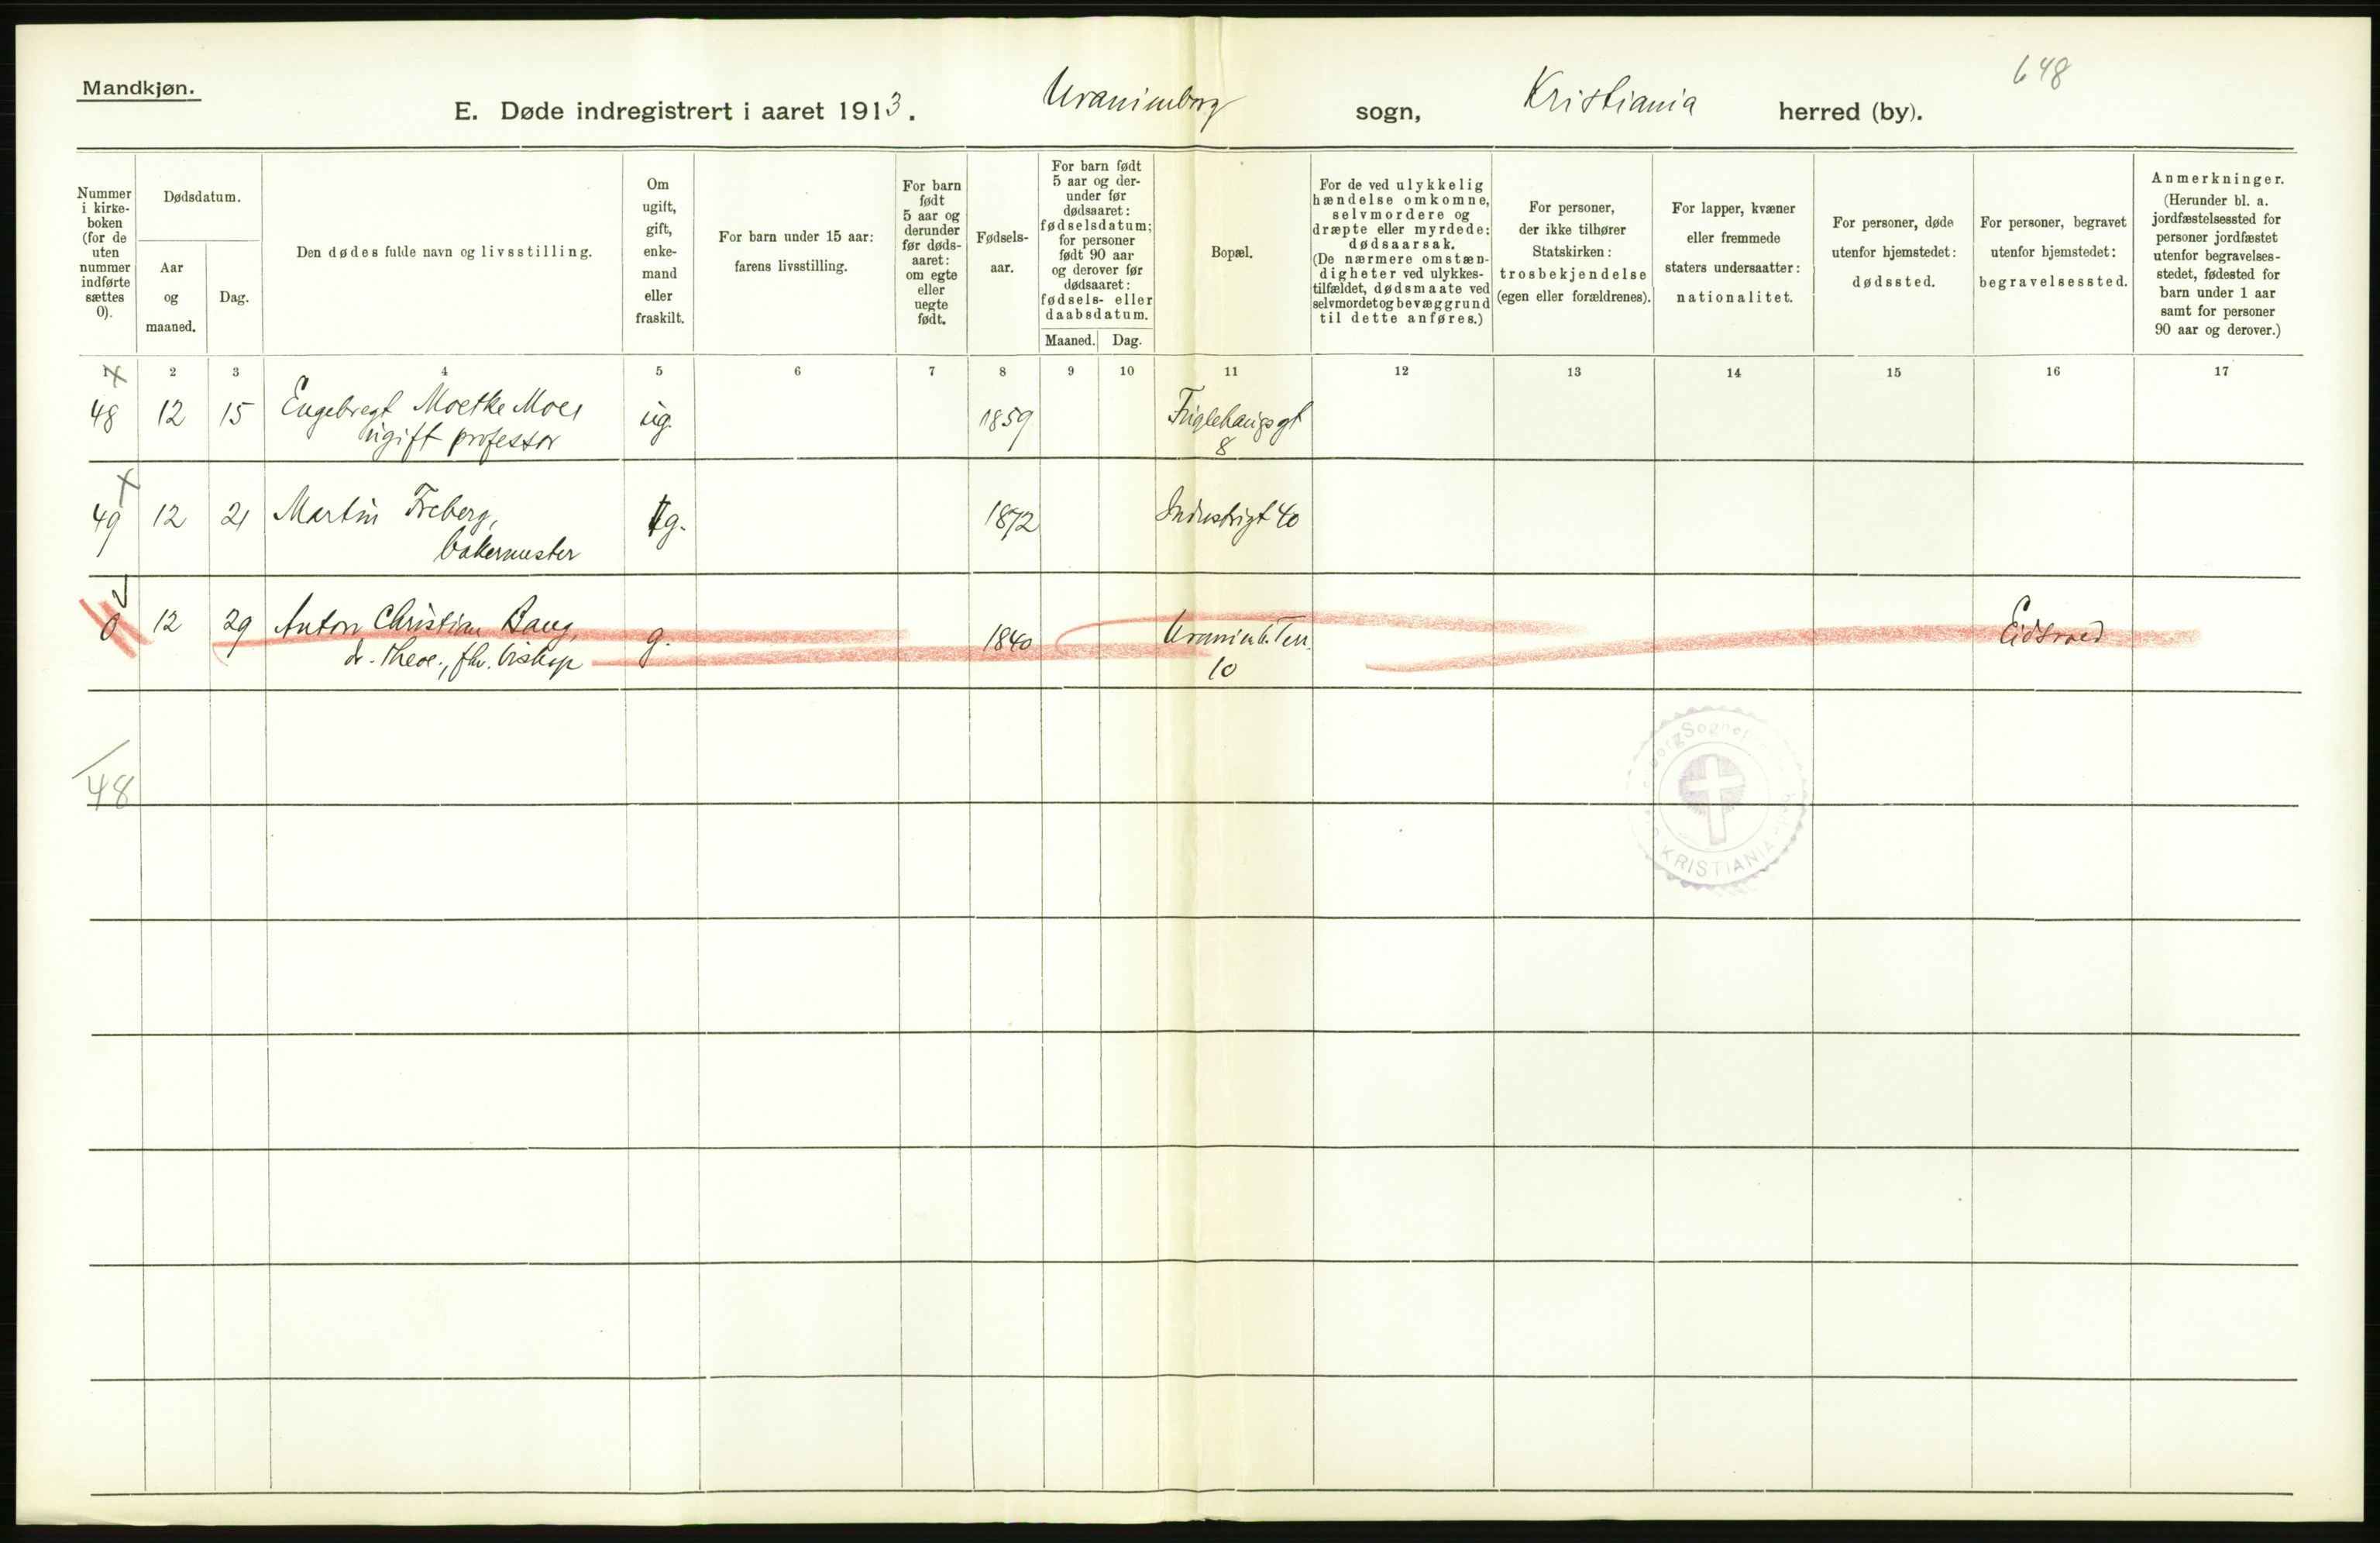 Mandkjøn.
648
E. Døde indregistrert i aaret 1913. Uranienborg sogn, Kristiania herred (by).
Nummer
i kirke-
boken
(for de
uten
nummer
indførte
sættes
0).
Dødsdatum.
Aar
og
maaned.
Dag.
Den dødes fulde navn og livsstilling.
Om
ugift,
gift,
enke-
mand
eller
fraskilt.
For barn under 15 aar:
farens livsstilling.
For barn
født
5 aar og
derunder
før døds-
aaret:
om egte
eller
uegte
født.
Fødsels-
aar.
For barn født
5 aar og der-
under før
dødsaaret:
fødselsdatum;
for personer
født 90 aar
og derover før
dødsaaret:
fødsels- eller
daabsdatum.
Maaned. Dag.
Bopæl.
For de ved ulykkelig
hændelse omkomne,
selvmordere og
dræpte eller myrdede:
dødsaarsak.
(De nærmere omstæn-
digheter ved ulykkes-
tilfældet, dødsmaate ved
selvmordet og bevæggrund
til dette anføres.)
For personer,
der ikke tilhører
Statskirken:
trosbekjendelse
(egen eller forældrenes).
For lapper, kvæner
eller fremmede
staters undersaatter:
nationalitet.
For personer, døde
utenfor hjemstedet:
dødssted.
For personer, begravet
utenfor hjemstedet:
begravelsessted.
Anmerkninger.
(Herunder bl. a.
jordfæstelsessted for
personer jordfæstet
utenfor begravelses-
stedet, fødested for
barn under 1 aar
samt for personer
90 aar og derover.)
1 2 3 4 5 6 7 8 9 10 11 12 13 14 15 16 17
48 12 15 Engebregt Moltke Moe, ug. 1859 Fuglehaugsgt
ugift professor 8
49 12 21 Martin Freberg, g. 1872 Industrigt 40
bakermester
0 12 29 Anton Christian Bang, g. 1840 Uranienb. Terr. Eidsvold
dr. theol., fhv. biskop 10
48
Sognep
KRISTIANIA